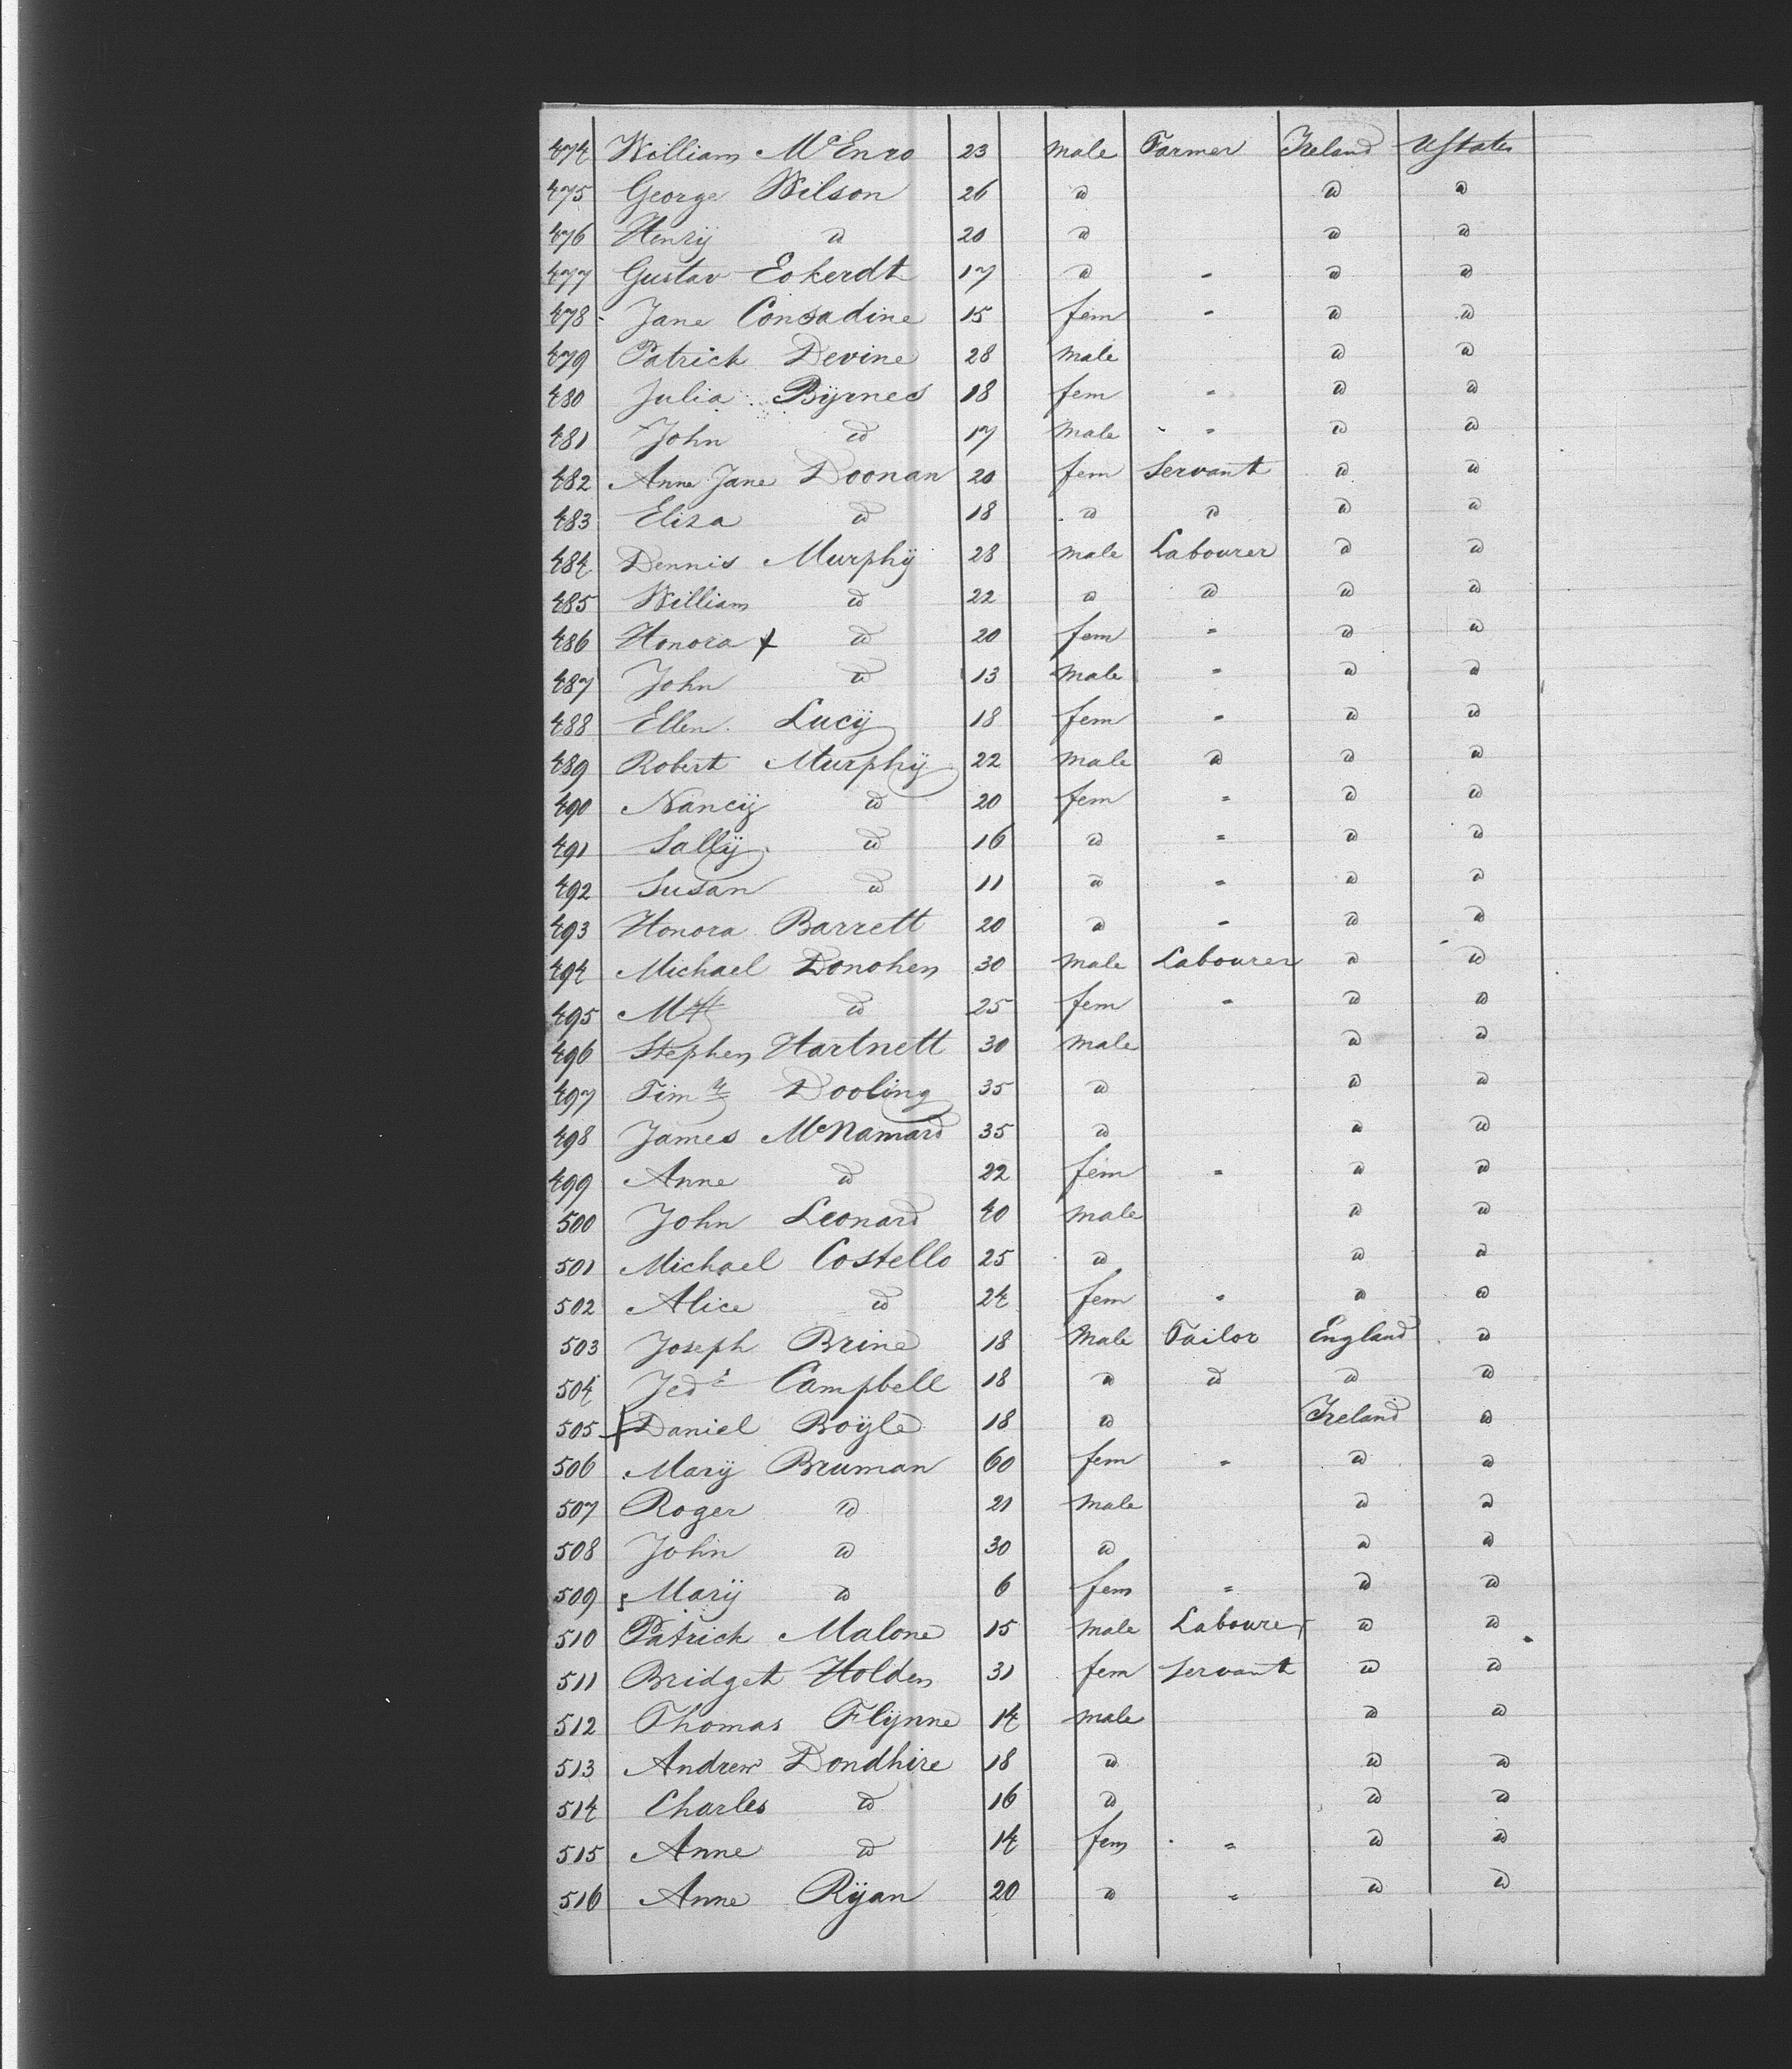 474 William McEnro 23 male Farmer Ireland UStates
475 George Wilson 26 d d d
476 Henrÿ d 20 d d d
477 Gustav Eckerdt 17 d " d d
478 Jane Consadine 15 fem " d d
479 Patrick Devine 28 male d d
480 Julia Bÿrnes 18 fem " d d
481 John d 17 male " d d
482 Anne Jane Doonan 20 fem Servant d d
483 Eliza d 18 d d d d
484 Dennis Murphÿ 28 male Labourer d d
485 William d 22 d d d d
486 Honora d 20 fem " d d
487 John d 13 male " d d
488 Ellen Lucÿ 18 fem " d d
489 Robert Murphÿ 22 male d d d
490 Nancÿ d 20 fem " d d
491 Sallÿ d 16 d " d d
492 Susan d 11 d " d d
493 Honora Barrett 20 d " d d
494 Michael Donohen 30 male Labourer d d
495 d 25 fem " d d
496 Stephen Hartnett 30 male d d
497 Timy Dooling 35 d d d
498 James McNamara 35 d d d
499 Anne d 22 fem " d d
500 John Leonard 40 male d d
501 Michael Costello 25 d d d
502 Alice d 24 fem " d d
503 Joseph Brine 18 Male Tailor England d
504 Campbell 18 d d d d
505 Daniel Boÿle 18 d Ireland d
506 Marÿ Bruman 60 fem " d d
507 Roger d 21 male d d
508 John d 30 d d d
509 Marÿ d 6 fem " d d
510 Patrick Malone 15 male Labourer d d
511 Bridget Holden 31 fem servant d d
512 Thomas Flÿnne 14 male d d
513 Andrew Dondhire 18 d d d
514 Charles d 16 d d d
515 Anne d 14 fem " d d
516 Anne Rÿan 20 d " d d